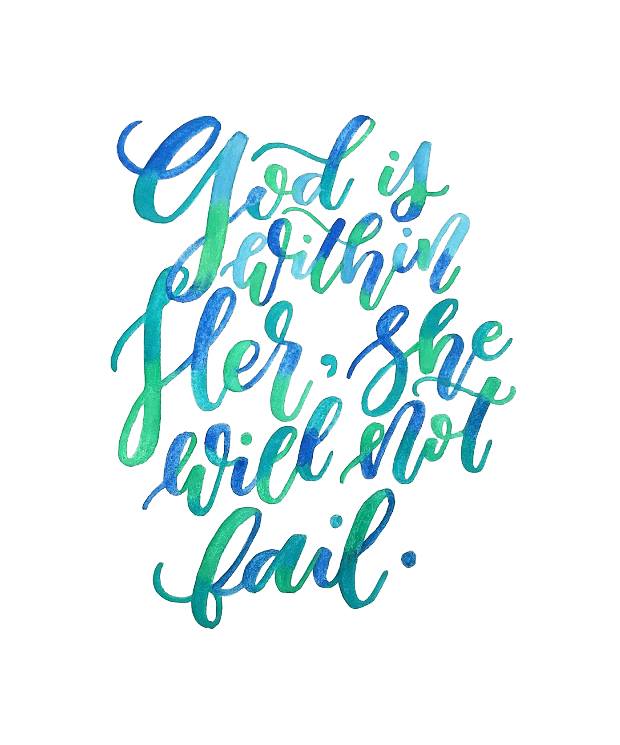 God is
within
Her, She
will not
fail.